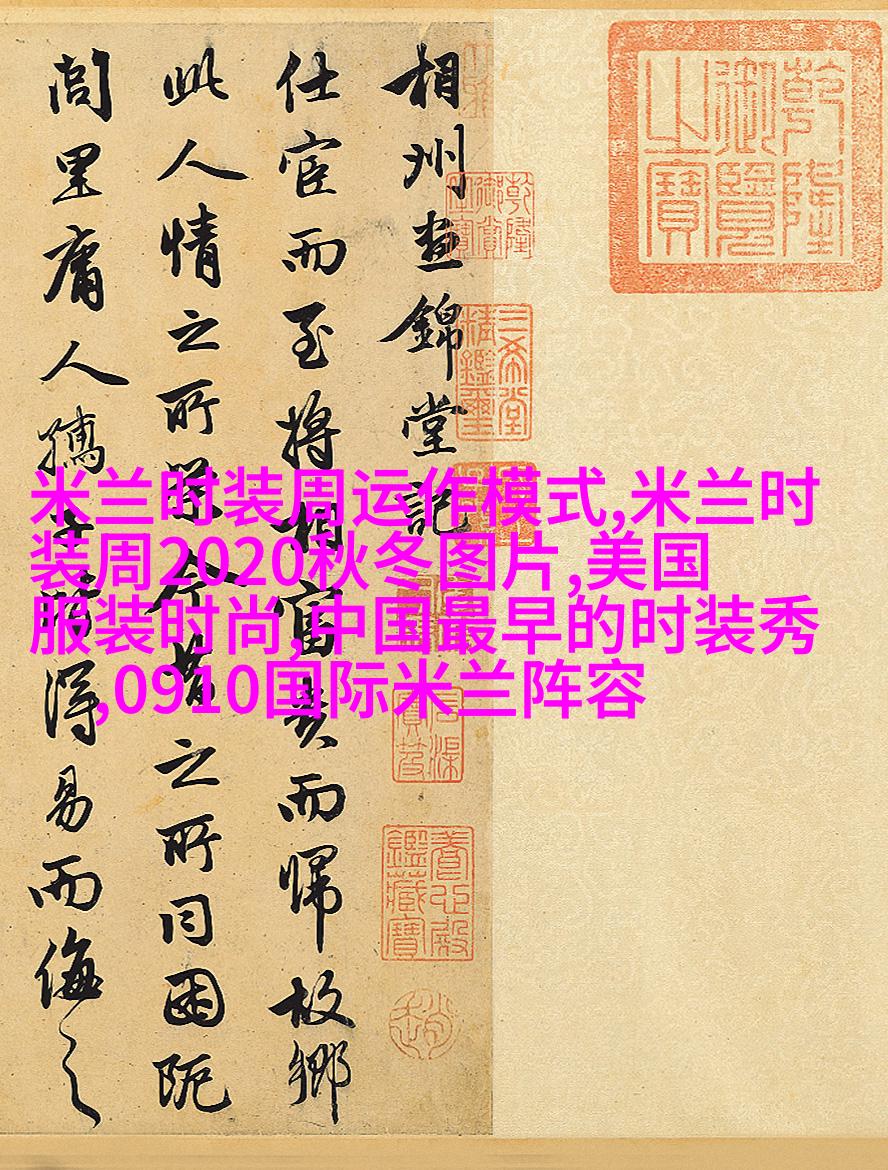 乾隆御覽之寶
三希堂精鑑璽
養心殿鑑藏寶
相州晝錦堂記
仕宦而至將相富貴而歸故鄉
此人情之所榮今昔之所同困阨
閭里庸人孺子皆得易而侮之
米兰时装周运作模式,米兰时
装周2020秋冬图片,美国
服装时尚,中国最早的时装秀
,0910国际米兰阵容